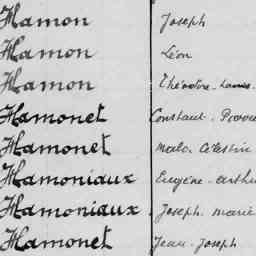 Hamon Joseph
Hamon Léon
Hamon Théodore-Louis.
Hamonet Constant.
Hamonet Malo. Célestin
Hamoniaux Eugène-Arthu
Hamoniaux Joseph. Marie
Hamonet Jean-Joseph